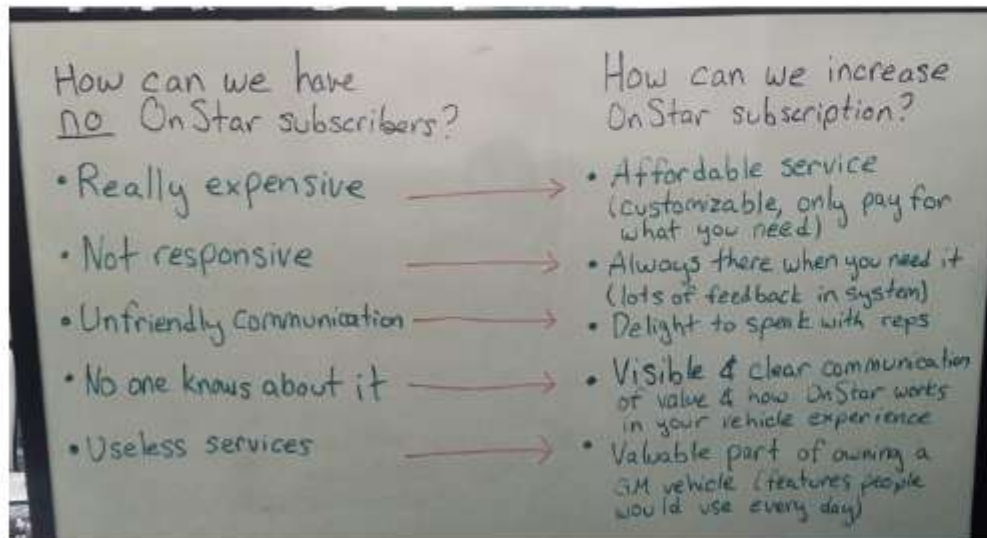 How can we have
no OnStar subscribers?
• Really expensive
• Not responsive
• Unfriendly communication
• No one knows about it
• Useless services
How can we increase
OnStar subscription?
• Affordable service
(customizable, only pay for
what you need)
• Always there when you need it
(lots of feedback in system)
• Delight to speak with reps
• Visible & clear communication
of value & how OnStar works
in your vehicle experience
• Valuable part of owning a
GM vehicle (features people
would use every day)